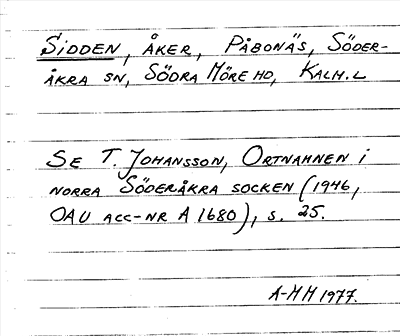 SIDDEN, ÅKER, PÅBONÄS, SÖDER-
ÅKRA SN, SÖDRA MÖRE HD, KALM. L
SE T. JOHANSSON, ORTNAMNEN I
NORRA SÖDERÅKRA SOCKEN (1946,
OAU ACC-NR A 1680), S. 25.
A-MH 1977.